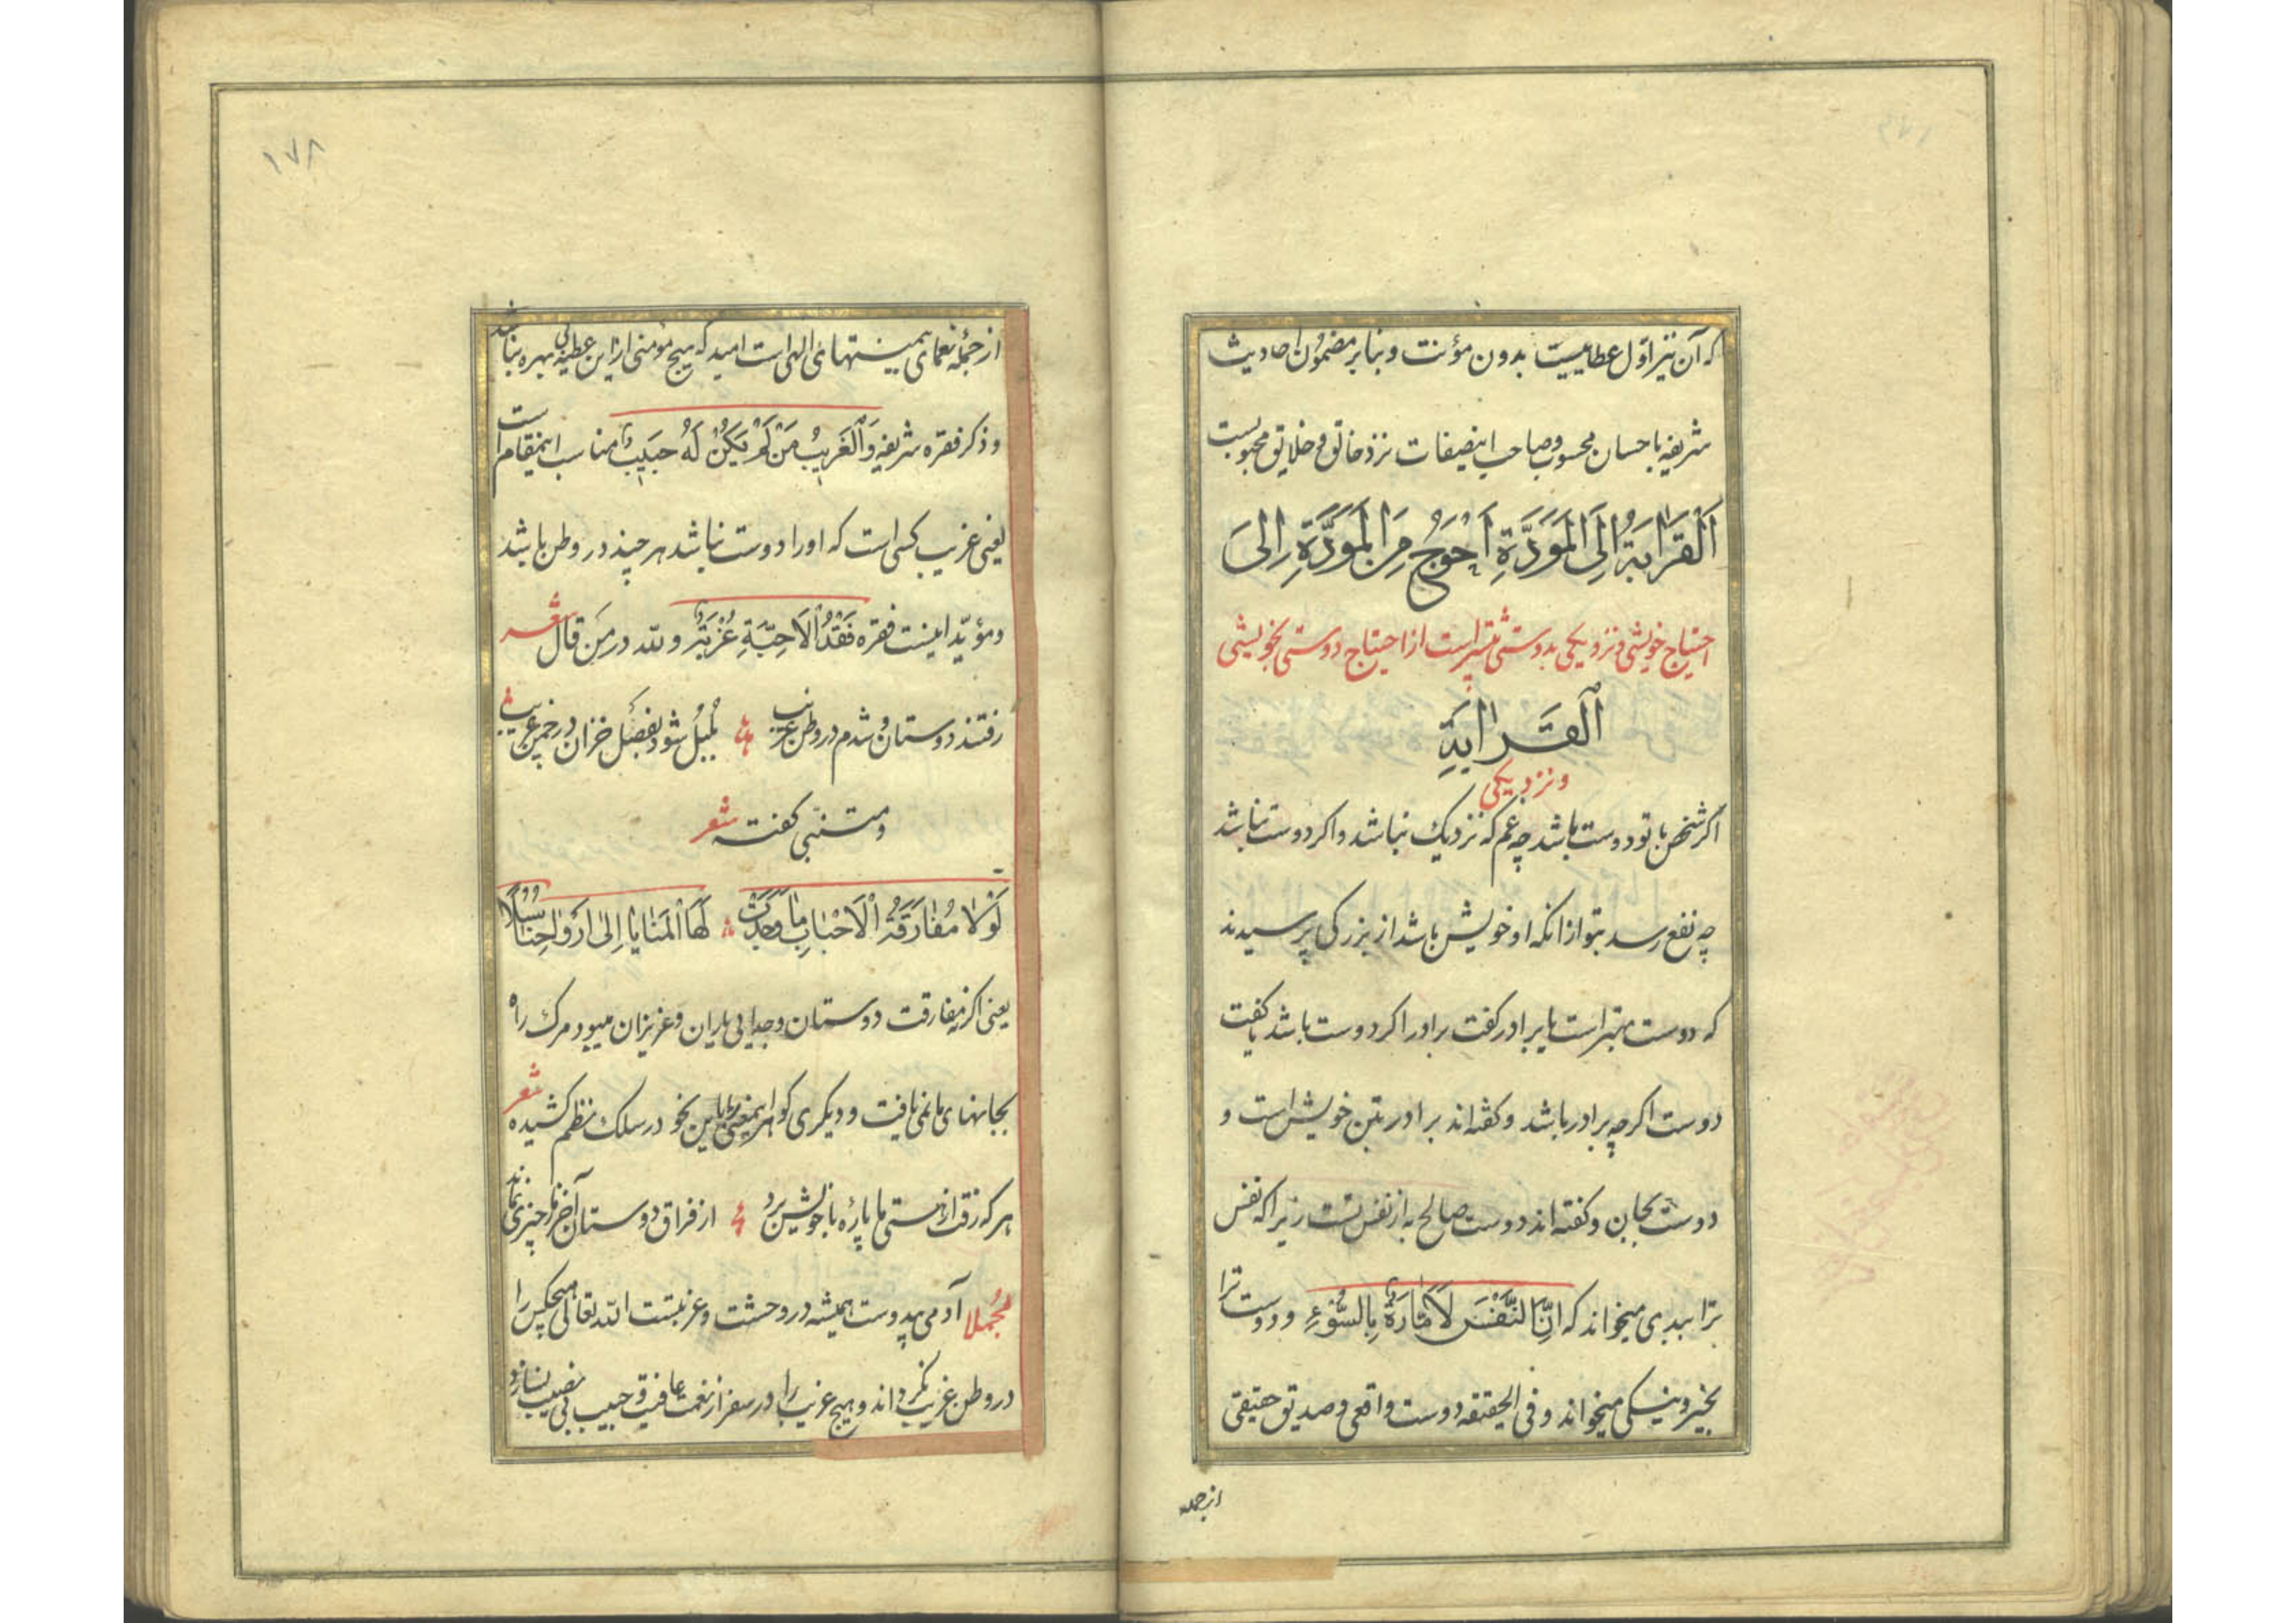 که آن نیز اول عطاییست بدون مؤنت و بنابر مضمون احادیث
شریفه باحسان محسوب و صاحب اینصفات نزد خالق و خلایق محبوبست
اَلْقَرَابَةُ اِلَی الْمَوَدَّةِ اَحْوَجُ مِنَ الْمَوَدَّةِ اِلَی
احتیاج خویشی و نزدیکی بدوستی بیشتر است از احتیاج دوستی بخویشی
اَلْقَرَابَةِ
و نزدیکی
اگر شخص با تو دوست باشد چه غم که نزدیک نباشد و اگر دوست نباشد
چه نفع رسد بتو از انکه او خویش باشد از بزرگی پرسیدند
که دوست بهتر است یا برادر گفت برادر اگر دوست باشد یا گفت
دوست اگرچه برادر باشد و گفته‌اند برادر بتن خویش است و
دوست بجان و گفته‌اند دوست صالح به از نفس تست زیرا که نفس
ترا ببدی میخواند که اِنَّ النَّفْسَ لَاَمَّارَةٌ بِالسُّوءِ و دوست ترا
بخیر و نیکی میخواند و فی الحقیقه دوست واقعی و صدیق حقیقی
ازجمله
۱۷۸
از جمله نعمای بیمنتهای الهی است امید که هیچ مؤمنی از این عطیه بی بهره نباشد
و ذکر فقره شریفه وَالْغَرِیبُ مَنْ لَمْ یَکُنْ لَهُ حَبِیبٌ مناسب اینمقام است
یعنی غریب کسی است که او را دوست نباشد هر چند در وطن باشد
و مؤید اینست فقره فَقْدُ الْاَحِبَّةِ غُرْبَةٌ و لله در من قال شعر
رفتند دوستان و شدم در وطن غریب بلبل شود بفصل خزان در چمن غریب
و متنبی گفته شعر
لَوْلَا مُفَارَقَةُ الْاَحْبَابِ مَا وَجَدَتْ لَهَا الْمَنَایَا اِلَی اَرْوَاحِنَا سُبُلًا
یعنی اگر نه مفارقت دوستان و جدایی یاران و عزیزان میبود مرگ راه
بجانهای ما نمی یافت و دیگری گوهر اینمعنی را باین نحو در سلک نظم کشیده شعر
هر که رفت از هستی ما پارهٔ با خویش برد از فراق دوستان آخر ز ما چیزی نماند
مجملا آدمی بیدوست همیشه در وحشت و غربتست الله تعالی هیچکس را
در وطن غریب نگرداند و هیچ غریب را در سفر از نعمت عافیت و حبیب بی نصیب نسازد